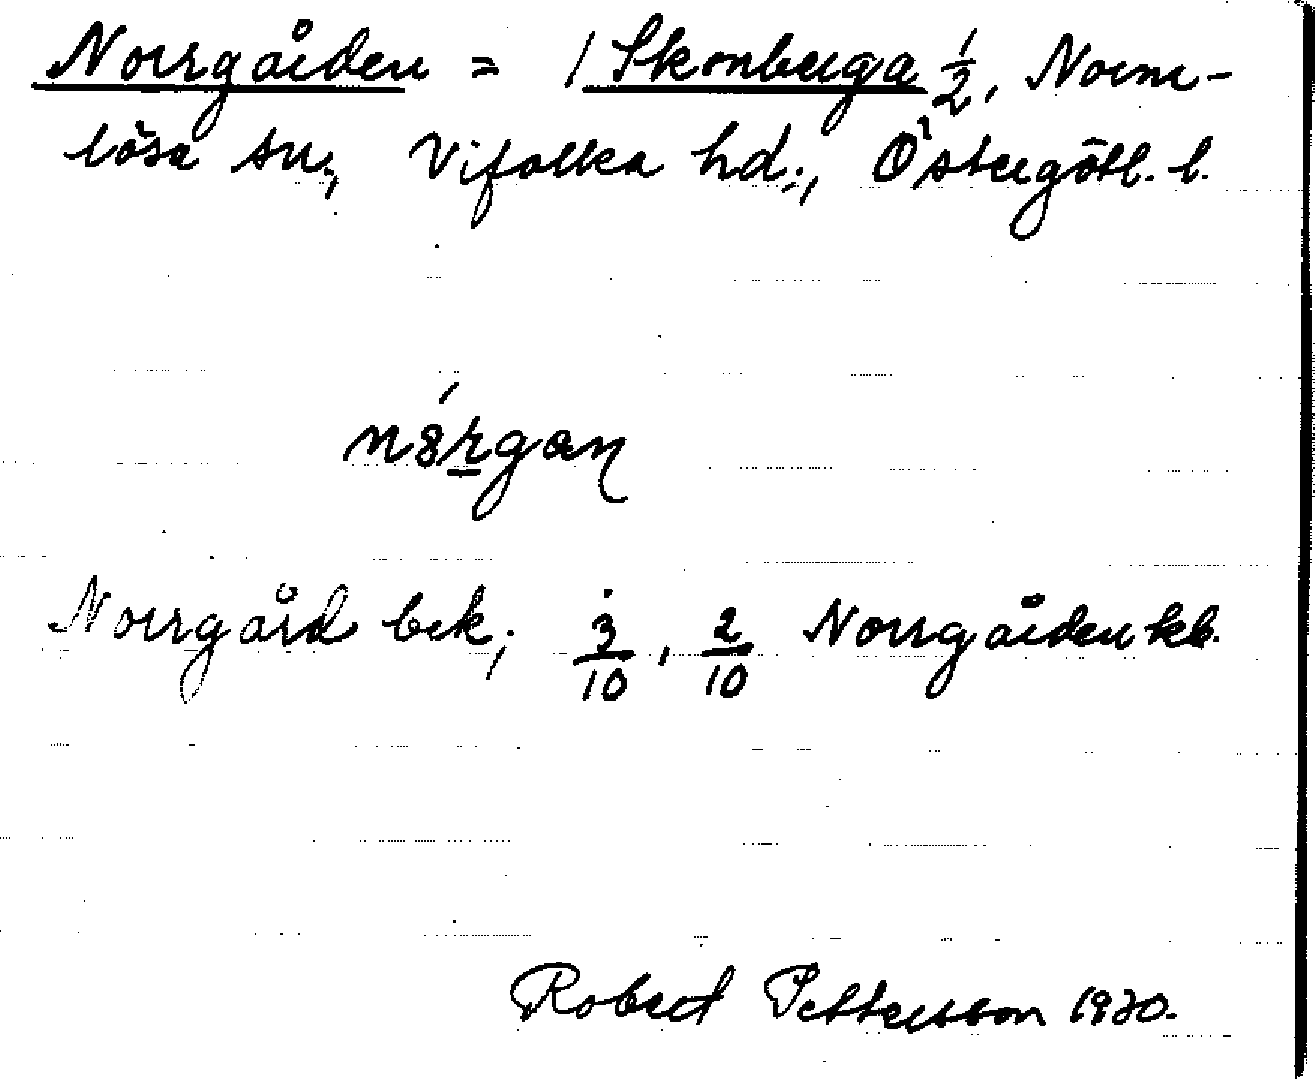 Norrgården = 1 Skonberga 1/2, Norm-
lösa sn., Vifolka hd., Östergötl. l.
nȣ́rgan
Norrgård bek., 3/10, 2/10 Norrgården kb.
Robert Pettersson 1920.